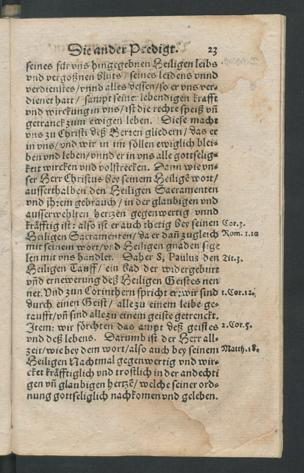 Die ander Predigt. 23
seines für vns hingegebnen Heiligen leibs
vnd vergoßnen Bluts / seines leidens vnnd
verdienstes / vnnd alles dessen / so er vns ver-
dienet hatt / sampt seiner lebendigen krafft
vnd wirckung in vns / ist die rechte speiß vñ
getranck zum ewigen leben. Diese macht
vns zu Christi deß Herren gliedern / das er
in vns / vnd wir in im söllen ewiglich blei-
ben vnd leben / vnnd er in vns alle gottselig-
keit wircken vnd vollstrecken. Dann wie vn-
ser Herr Christus bey seinem Heiligē wort /
ausserthalben den Heiligen Sacramenten
vnd jhrem gebrauch / in der glaubigen vnd
ausserwehlten hertzen gegenwertig vnnd
kräfftig ist: also ist er auch thetig bey seinen Cor.3.
Heiligen Sacramenten / da er dañ zugleych Rom.1.10
mit seinem wort / vnd Heiligen gnaden sige
len mit vns handler. Daher S. Paulus den Tit.3.
Heiligen Tauff / ein bad der widergeburt
vñ ernewerung deß Heiligen Geistes nen
net. Vnd zun Corinthern spricht er: wir sind 1.Cor.12.
durch einen Geist / alle zu einem leibe ge-
taufft / vñ sind alle zu einem geiste getrenckt.
Item: wir förchten das ampt deß geistes 2.Cor.5.
vnd deß lebens. Darumb ist der Herr all-
zeit / wie bey dem wort / also auch bey seinem Matth.18.
Heiligen Nachtmal gegenwertig vnd wir-
cket kräfftiglich vnd trostlich in der andechti
gen vñ glaubigen hertzē / welche seiner ord-
nung gottseliglich nachkomen vnd geleben.